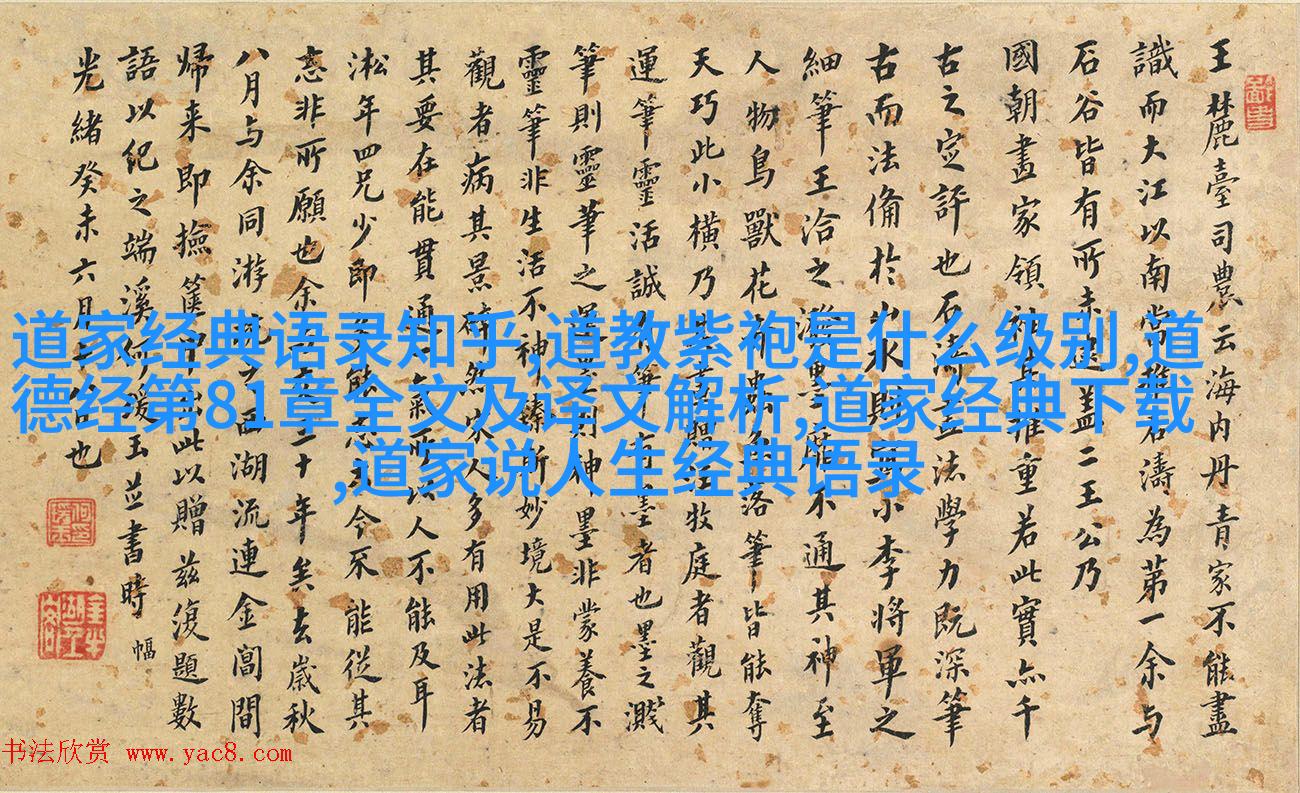 王麓臺司農云海内丹青家不能盡
識而大江以南當推石濤為第一余与
石谷皆有所未逮蓋二王公乃
國朝畫家領袖其推重若此實亦千
古之定評也石濤畫法學力既深筆
古而法備於山水則小李將軍之
細筆王洽之潑墨靡不通其神至
人物鳥獸花卉蟲魚落筆皆能奪
天巧此小橫乃牧庭者觀其
運筆靈活誠墨者也墨之濺
筆則靈筆之運墨則神墨非蒙養不
靈筆非生活不神臻斯妙境大是不易
觀者病其景碎然宋人多有用此法者
其要在能貫通一氣所以人不能及耳
淞年四兄少即今不能從其
志非所願也余三十年矣去歲秋
八月与余同游西湖流連金閶間
歸来即撿篋此以贈茲復題數
語以紀之端溪何瑗玉並書時
幅
光緒癸未六月也
道家经典语录知乎,道教紫袍是什么级别,道
德经第81章全文及译文解析,道家经典下载
,道家说人生经典语录
书法欣赏 www.yac8.com